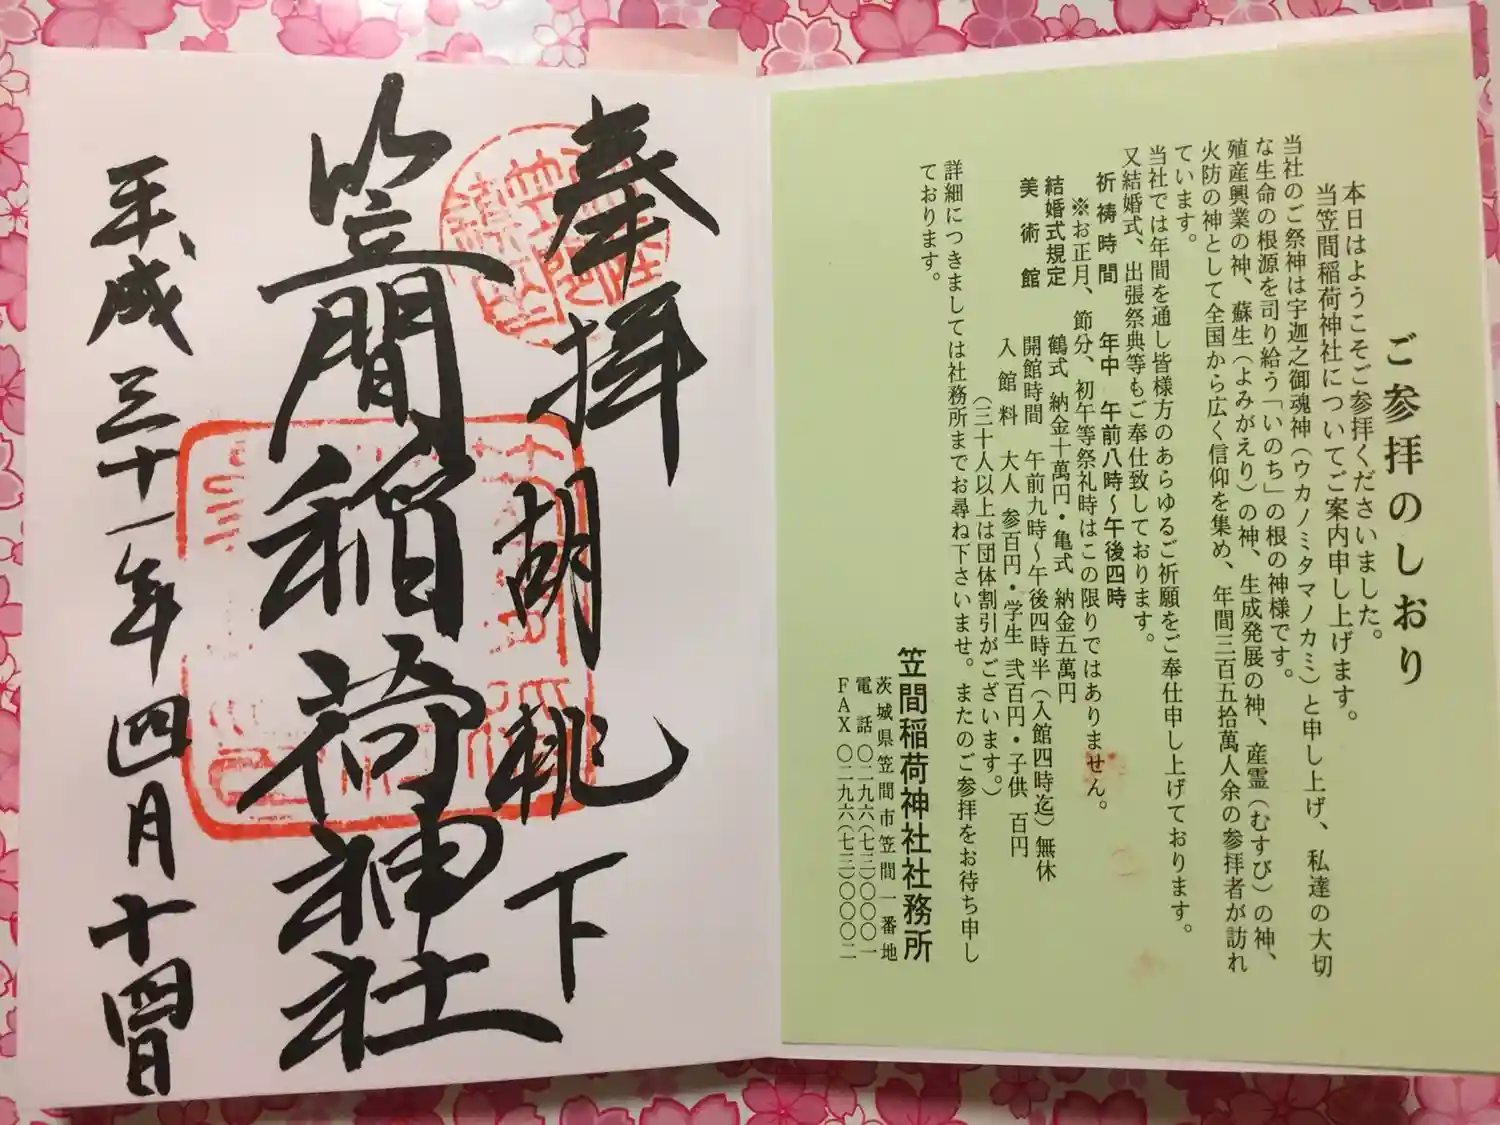 ご参拝のしおり
本日はようこそご参拝くださいました。
当笠間稲荷神社についてご案内申し上げます。
当社のご祭神は宇迦之御魂神（ウカノミタマノカミ）と申し上げ、私達の大切
な生命の根源を司り給う「いのち」の根の神様です。
殖産興業の神、蘇生（よみがえり）の神、生成発展の神、産霊（むすび）の神、
火防の神として全国から広く信仰を集め、年間三百五拾萬人余の参拝者が訪れ
ています。
当社では年間を通し皆様方のあらゆるご祈願をご奉仕申し上げております。
又結婚式、出張祭典等もご奉仕致しております。
祈祷時間 年中 午前八時～午後四時
※お正月、節分、初午等祭礼時はこの限りではありません。
結婚式規定 鶴式 納金十萬円・亀式 納金五萬円
美術館 開館時間 午前九時～午後四時半（入館四時迄）無休
入館料 大人 参百円・学生 弐百円・子供 百円
（三十人以上は団体割引がございます。）
詳細につきましては社務所までお尋ね下さいませ。またのご参拝をお待ち申し
ております。
笠間稲荷神社社務所
茨城県笠間市笠間一番地
電話〇二九六（七三）〇〇〇一
FAX〇二九六（七三）〇〇〇二
奉拝 胡桃下
笠間稲荷神社
平成三十一年四月十四日